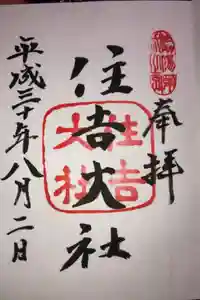 奉拝
住吉大社
住吉大社
平成三十年八月二日